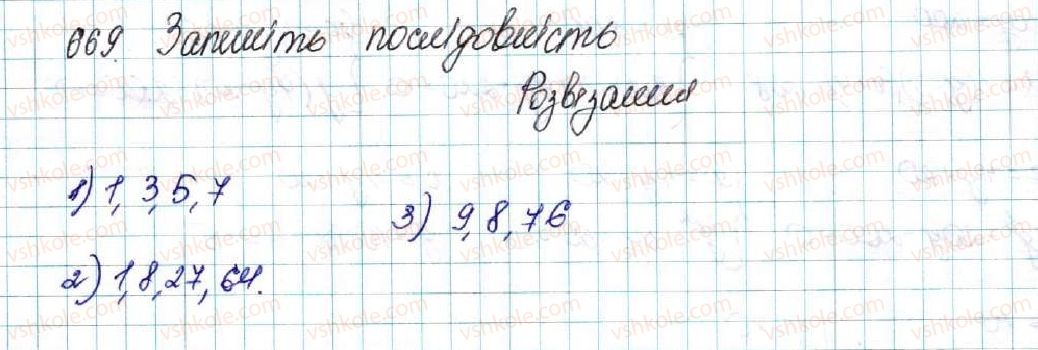 669. Запишіть послідовність
Розвязання
1) 1, 3, 5, 7
3) 9, 8, 76
2) 1, 8, 27, 64.